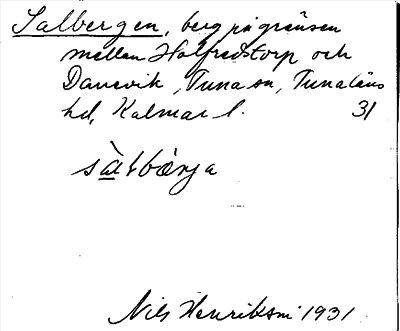 Salbergen, berg på gränsen
mellan Halfredstorp och
Danevik, Tuna sn, Tunaläns
hd, Kalmar l. 31
sàlbærja
Nils Henriksson 1931